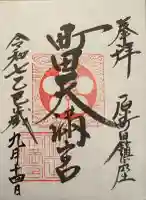 奉拝
原町田鎮座
町田天満宮
令和七乙巳歳
九月十四日